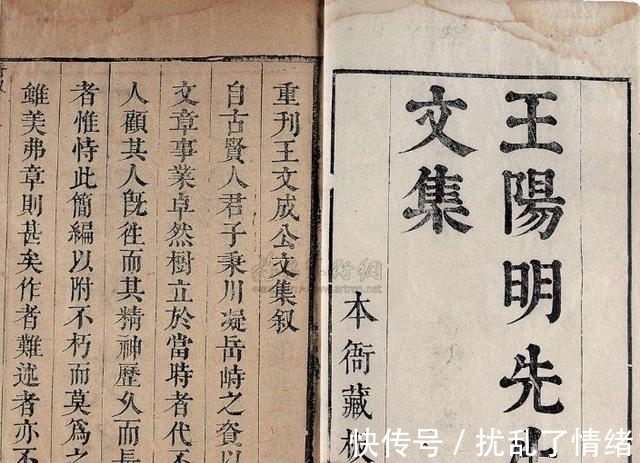 王陽明先
文集
本衙藏板
重刊王文成公文集叙
自古賢人君子秉川凝岳峙之資以
文章事業卓然樹立於當時者代不
人顧其人旣往而其精神歷久而
者惟恃此簡編以附不朽而莫爲之
雖美弗章則甚矣作者難述者亦不
快传号/扰乱了情绪